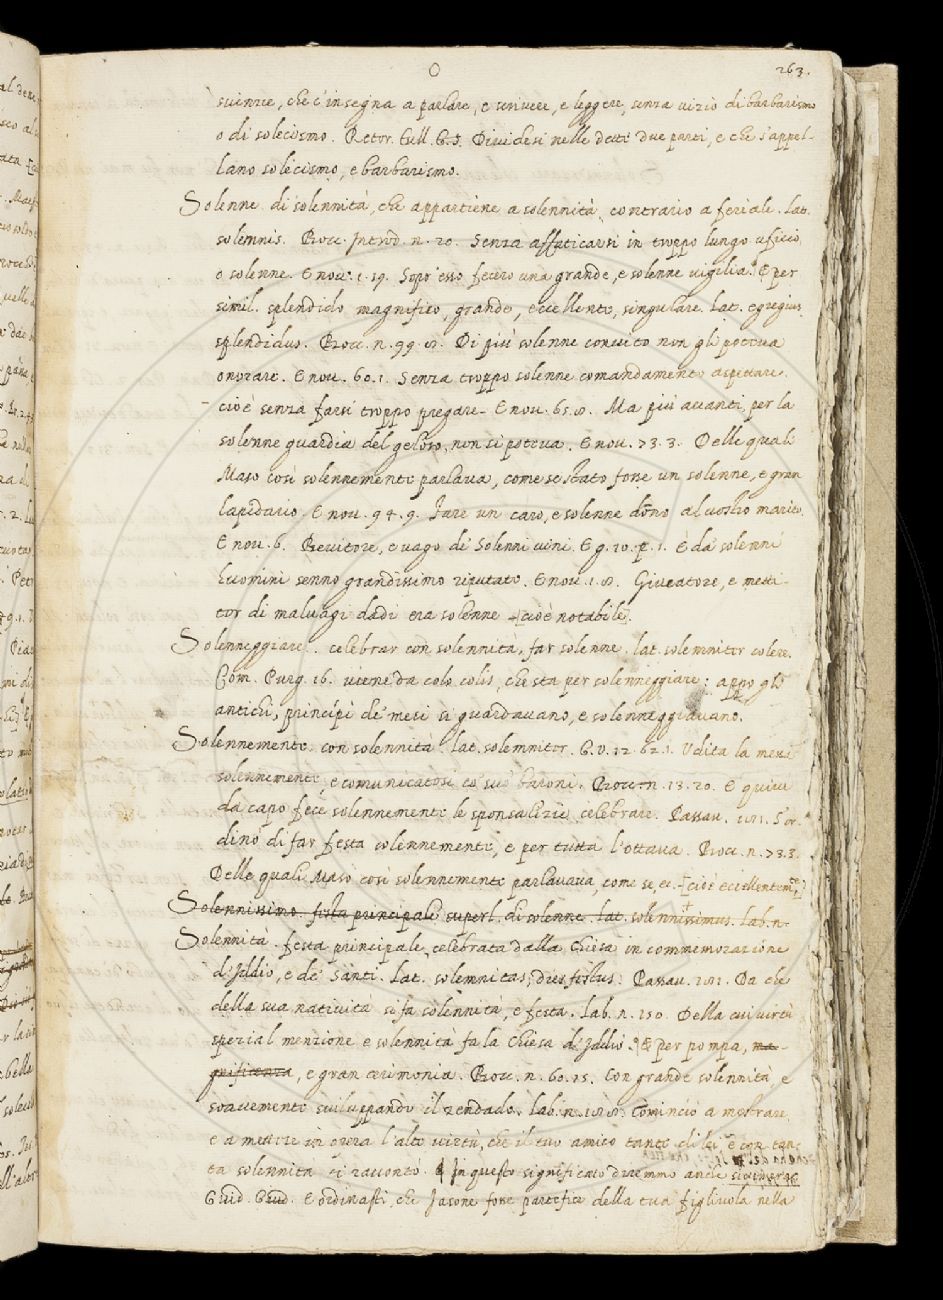 O 263.
scienzie, che c'insegna a parlare, e scrivere, e leggere, senza vizio di barbarismo
o di solecismo. Rettor. Tull. G.S. Dividesi nelle dette due parti, e che s'appel-
lano solecismo, e barbarismo.
Solenne. di solennità, che appartiene a solennità, contrario a feriale. Lat.
solemnis. Bocc. Introd. n. 20. Senza affaticarsi in troppo lungo uficio,
o solenne. E nov. 1. 19. Sopr'esso fecero una grande, e solenne vigilia. E per
simil. splendido magnifico, grande, eccellente, singulare. Lat. egregius,
splendidus. Bocc. n. 99. 8. Di più solenne convito non gli poteva
onorare. E nov. 60. 1. Senza troppo solenne comandamento aspettare.
- cioè senza farsi troppo pregare - E nov. 65. 8. Ma più avanti, per la
solenne guardia del geloso, non si poteva. E nov. 73. 3. Delle quali
Maso così solennemente parlava, come se stato fosse un solenne, e gran
lapidario. E nov. 94. 9. fare un caro, e solenne dono al vostro marito.
E nov. 6. Bevitore, e vago de' Solenni vini. E g. 10. p. 1. E da solenni
huomini senno grandissimo riputato. E nov. 1. 8. Giucatore, e metti-
tor di malvagi dadi era solenne [cioè notabile].
Solenneggiare. celebrar con solennità, far solenne. lat. solemniter colere.
Com. Purg. 16. viene da colo colis, che sta per solenneggiare: appo gli
antichi, principi de' mesi si guardavano, e solenneggiavano.
Solennemente con solennità. Lat. solemniter. G. V. 12. 62. 1. Udita la messa
solennemente e comunicatosi co' suo' baroni. Bocc. n. 13. 20. E quivi
da capo fece solennemente le sponsalizie celebrare. Passav. 181. S'or-
dinò di far festa solennemente, e per tutta l'ottava. Bocc. n. 73. 3.
Delle quali Maso così solennemente parlavava, come se, ec. - cioè eccellentem.te
Solennissimo. festa principale superl. di solenne. lat. solennissimus. Lab. n.
Solennità. festa principale, celebrata dalla Chiesa in commemorazione
d'Iddio, e de' Santi. Lat. solemnitas, dies festus. Passav. 181. Da che
della sua natività si fa solennità, e festa. Lab. n. 150. Della cui virtù
spezial menzione e solennità fa la Chiesa d'Iddio. E per pompa, ma-
gnificenza, e gran cerimonia. Bocc. n. 60. 15. Con grande solennità, e
soavemente sviluppando il zendado. Lab. n. 188. Cominciò a mostrare,
e a mettere in opera l'alte virtù, che il tuo amico tante di lei e con tan-
ta solennità ti raccontò. In questo significato diremmo anche
Guid. Giud. E ordinasti, che Jasone fosse partefice della tua figliuola nella